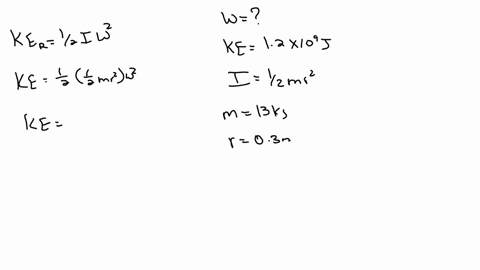 KE_R = 1/2 I ω²
KE = 1/2 (1/2 mr²) ω²
KE =
ω = ?
KE = 1.2 × 10⁹ J
I = 1/2 mr²
m = 13 kg
r = 0.3m